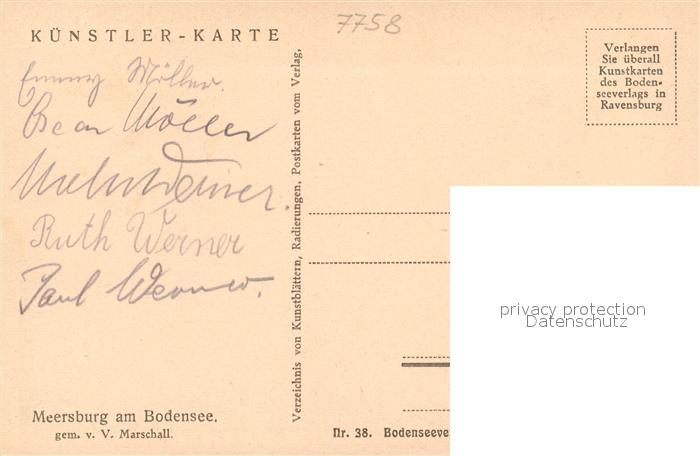 KÜNSTLER-KARTE
7758
Emmy Möller.
Oscar Möller
Werner.
Ruth Werner
Paul Werner.
Meersburg am Bodensee.
gem. v. V. Marschall.
Verzeichnis von Kunstblättern, Radierungen, Postkarten vom Verlag.
Verlangen
Sie überall
Kunstkarten
des Boden-
seeverlags in
Ravensburg
privacy protection
Datenschutz
Nr. 38. Bodenseeve